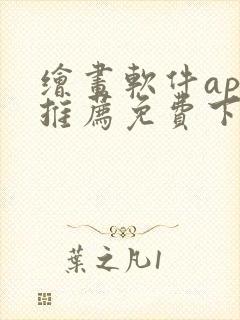 繪畫軟件ap
推薦免費下
葉之凡1